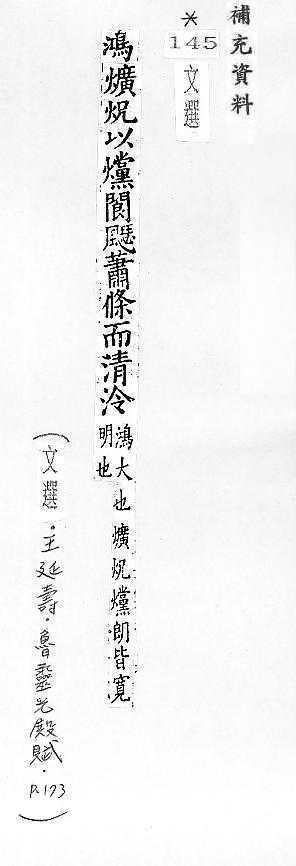 補充資料
*
145
文選
鴻爌炾以爣閬飋蕭條而清泠
鴻大也爌炾爣朗皆寬
明也
(文選.王延壽.魯靈光殿賦.P.173)